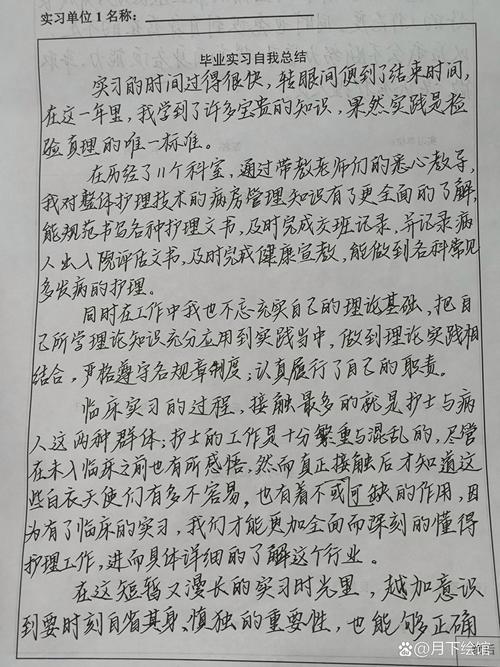 实习单位1名称：
毕业实习自我总结
实习的时间过得很快，转眼间便到了结束时间，
在这一年里，我学到了许多宝贵的知识，果然实践是检
验真理的唯一标准。
在历经了11个科室，通过带教老师们的悉心教导，
我对整体护理技术的病房管理知识有了更全面的了解，
能规范书写各种护理文书，及时完成交班记录，并记录病
人出入院评估文书，及时完成健康宣教，能做到各科常见
多发病的护理。
同时在工作中我也不忘充实自己的理论基础，把自
己所学理论知识充分应用到实践当中，做到理论实践相
结合，严格遵守各规章制度；认真履行了自己的职责。
临床实习的过程，接触最多的就是护士与病
人这两种群体；护士的工作是十分繁重与混乱的，尽管
在未入临床之前也有所感悟，然而真正接触后才知道这
些白衣天使们有多不容易，也有着不或可缺的作用，因
为有了临床的实习，我们才能更加全面而深刻的懂得
护理工作，进而具体详细的了解这个行业。
在这短暂又漫长的实习时光里，越加意识
到要时刻自省其身、慎独的重要性，也能够正确
@月下绘馆